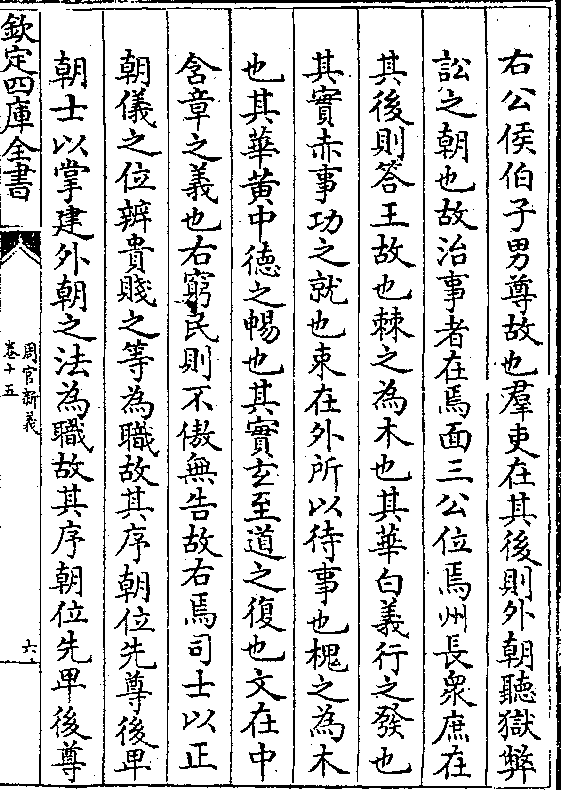 右公侯伯子男尊故也羣吏在其後則外朝聽獄弊
訟之朝也故治事者在焉面三公位焉州長衆庶在
其後則答王故也棘之為木也其華白義行之發也
其實赤事功之就也束在外所以待事也槐之為木
也其華黄中德之暢也其實玄至道之復也文在中
含章之義也右窮民則不傲無告故右焉司士以正
朝儀之位辨貴賤之等為職故其序朝位先尊後卑
朝士以掌建外朝之法為職故其序朝位先卑後尊
欽定四庫全書
周官新義
卷十五
六